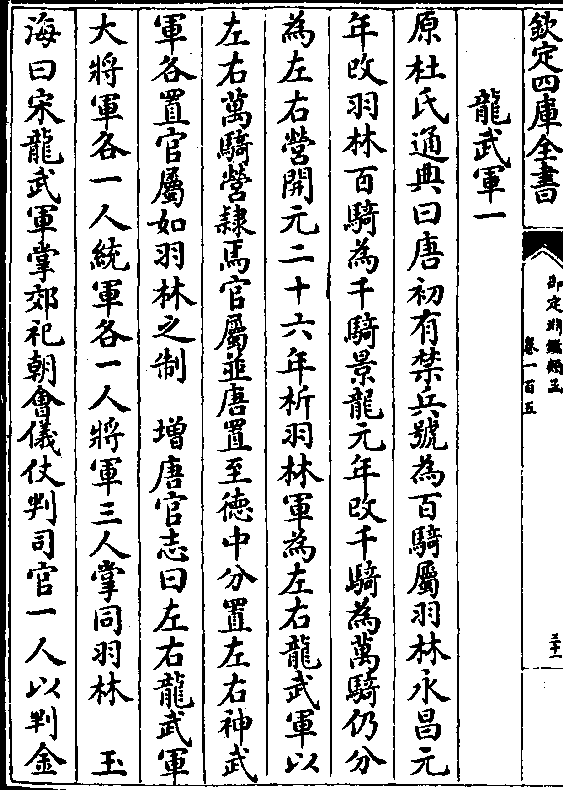 欽定四庫全書
御定淵鑑類函
卷一百五
三十一
龍武軍一
原杜氏通典曰唐初有禁兵號為百騎屬羽林永昌元
年改羽林百騎為千騎景龍元年改千騎為萬騎仍分
為左右營開元二十六年析羽林軍為左右龍武軍以
左右萬騎營隸焉官屬並唐置至德中分置左右神武
軍各置官屬如羽林之制　增唐官志曰左右龍武軍
大將軍各一人統軍各一人將軍三人掌同羽林　玉
海曰宋龍武軍掌郊祀朝會儀仗判司官一人以判金